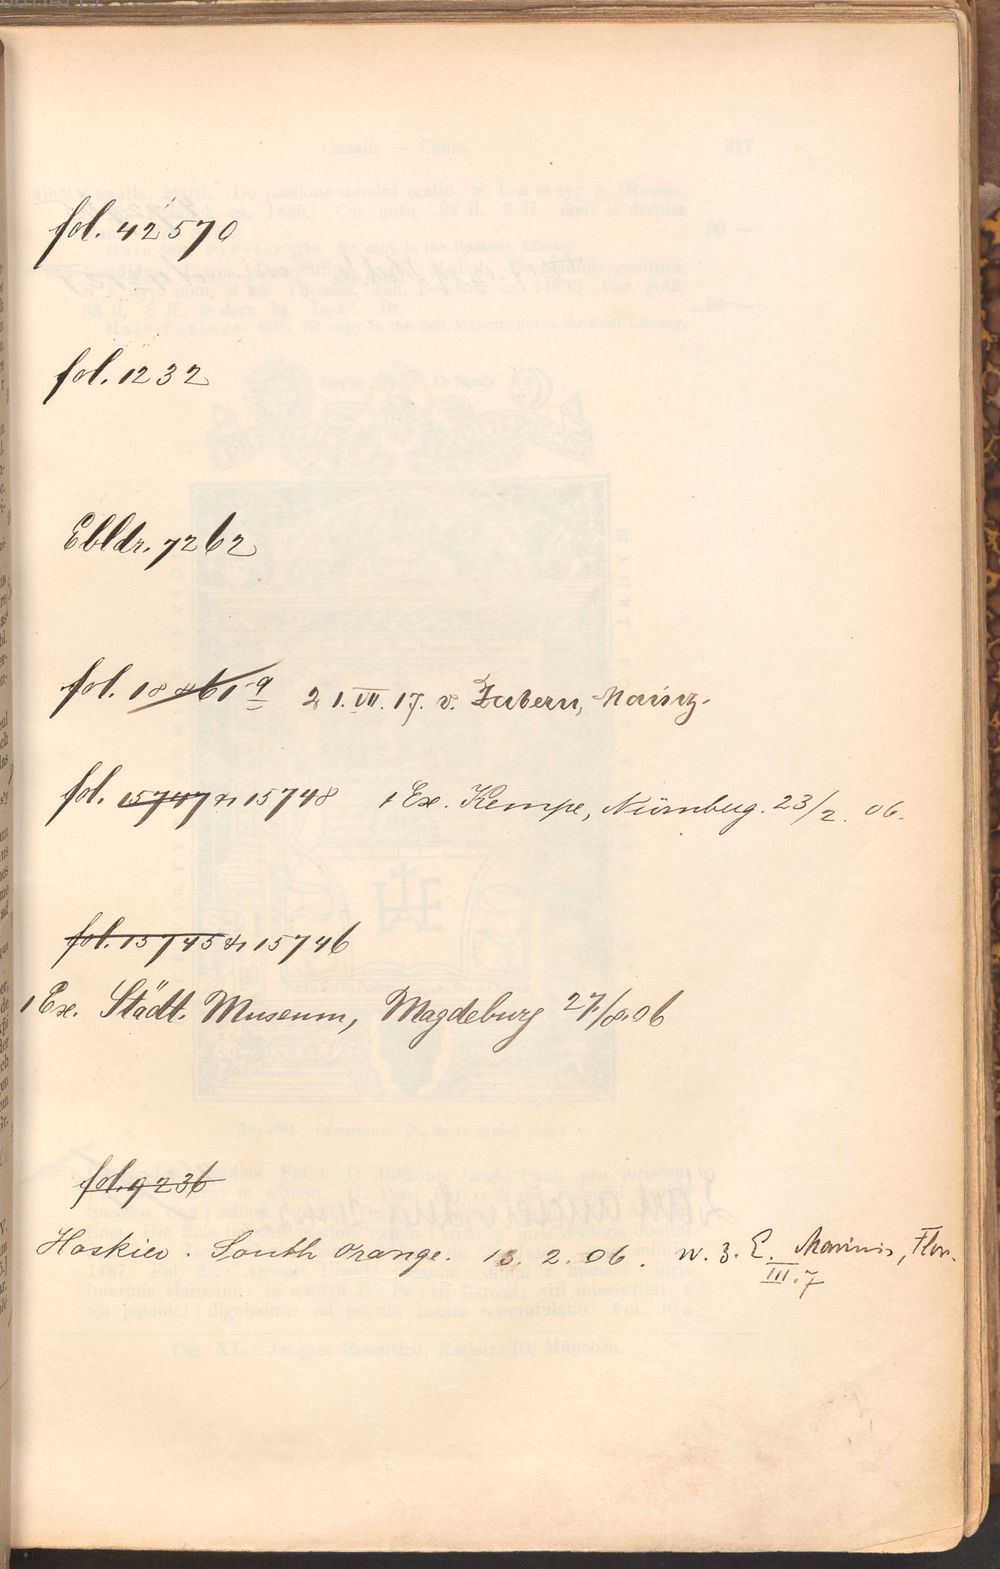 fol. 42570
fol. 1232
Ebldr. 7262
fol. 18861-9 21.VII.17. v. Zabern, Mainz.
fol. 15747 & 15748 1 Ex. Kempe, Nürnbug. 23/2. 06.
fol. 15745 & 15746
1 Ex. Städt. Museum, Magdeburg 27/8.06
fol. 9236
Hoskier. South Orange. 13. 2. 06. w. z. E. Marinis, Flor.
III.7